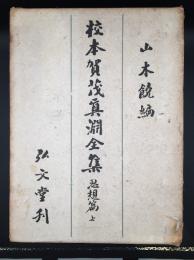 山本饒編
校本賀茂眞淵全集 思想篇 上
弘文堂刊